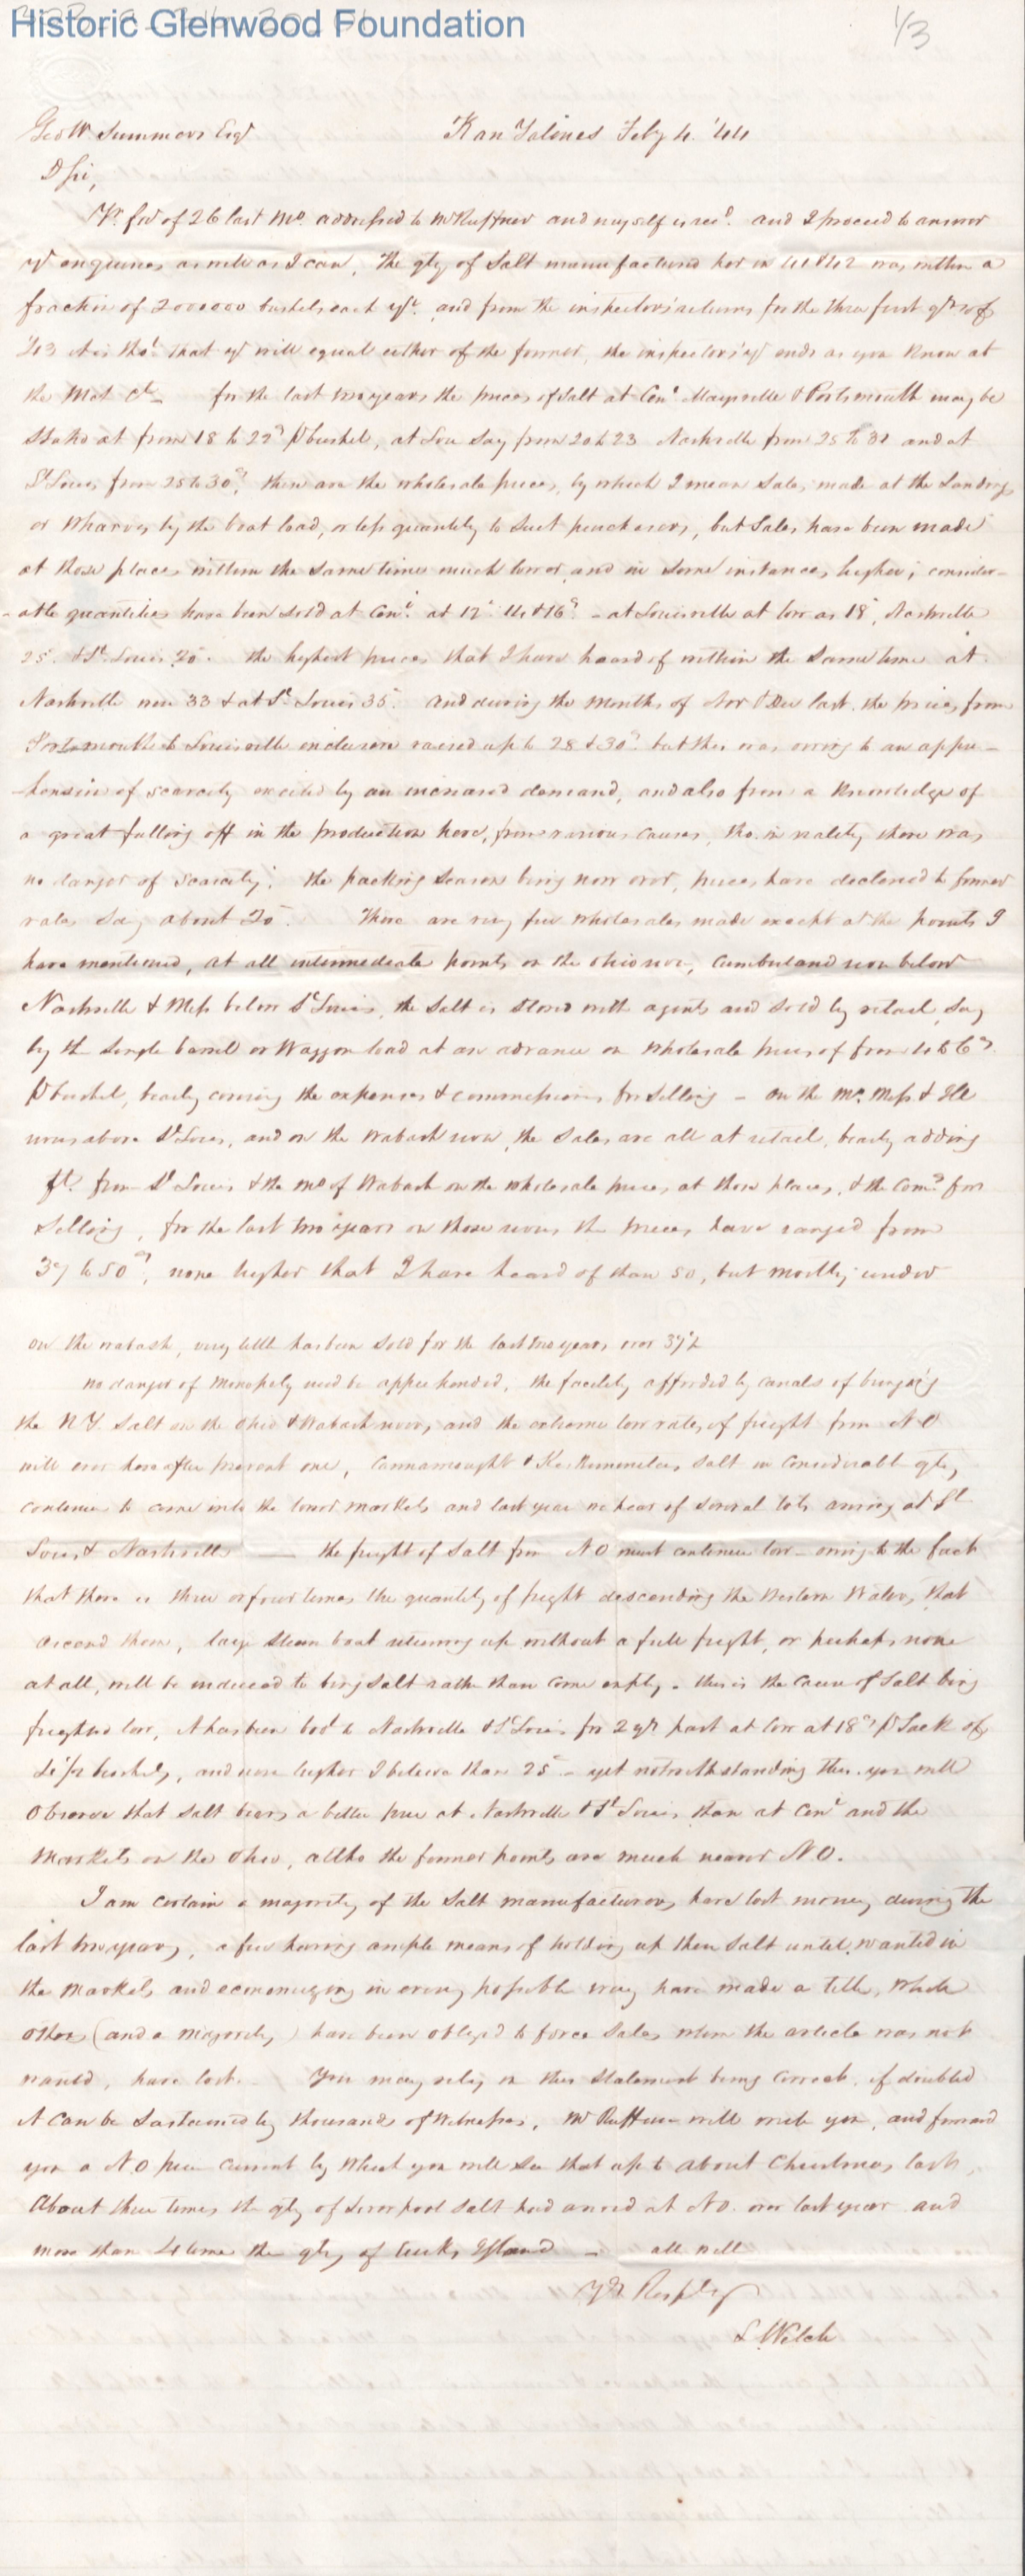 Historic Glenwood Foundation
1/3
Geo W Summers Esqr Kan Salines Feby 4. '44
D Sir,
Yr. fav of 26 last Mo. addressed to Mr Ruffner and myself is recd. and I proceed to answer
yr enquiries as well as I can, The qty of Salt manufactured her in 41 & 42 was within a
fraction of 2000000 bushels each yr. and from the inspectors' returns for the three first qrs of
'43 it is thot. that yr will equal either of the former, the inspectors' yr ends as you know at
the for the last two years the prices of Salt at Cint. Maysville & Portsmouth may be
Stated at from 18 to 22cs p bushel, at Lou say from 20 to 23 Nashville from 25 to 31 and at
St Louis from 25 to 30cs, these are the wholesale prices, by which I mean Sales made at the Landings
or Wharves by the boat load, or less quantity to Suit purchasers, but Sales have been made
at those places within the Same time much lower, and in some instances higher; consider-
-able quantities have been Sold at Cint. at 12c 14 & 16cs - at Louisville at low as 18c, Nashville
25c. & St. Louis 20c. the highest prices that I have heard of within the Same time at
Nashville was 33 & at St Louis 35c. and during the months of Nov & Dec last the prices from
Portsmouth to Louisville inclusive raised up to 28 & 30cs but this was owing to an appre-
-hension of scarcity excited by an increased demand, and also from a knowledge of
a great falling off in the production here, from various causes, tho. in reality there was
no danger of Scarcity. the packing Season being now over, prices have declined to former
rates say about 20c. There are very few wholesales made except at the points I
have mentioned, at all intermediate points on the ohio river, Cumberland river below
Nashville & Miss below St Louis, the Salt is Stored with agents and Sold by retail, say
by the Single barrel or Waggon load at an advance on wholesale prices of from 4 to 6cs
p bushel, barely covering the expenses & commissions for Selling - on the Mo. Miss & Ill
rivers above St Louis, and on the Wabash river, the Sales are all at retail, barely adding
ft. from St Louis & the mo of Wabash on the wholesale prices at those places, & the Coms. for
Selling, for the last two years on those rivers the prices have ranged from
37 to 50cs, none higher that I have heard of than 50, but mostly under
on the wabash, very little has been Sold for the last two years over 37½
no danger of Monopoly need be apprehended, the facility afforded by canals of bringing
the N Y. Salt on the Ohio & Wabash rivers, and the extreme low rates of freight from N O
will ever hereafter prevent one, & Salt in Considerable qty
continues to come into the lower markets and last year we hear of Several lots arriving at St
Louis & Nashville — the freight of Salt from N O must continue low - owing to the fact
that there is three or four times the quantity of freight descending the Western Waters, that
ascend them, large Steam boats returning up without a full freight, or perhaps none
at all, will be induced to bring Salt rather than come empty. this is the cause of Salt being
freighted low, it has been to Nashville & St Louis for 2 yrs past at low at 18cs p Sack of
4½ bushels, and none higher I believe than 25c - yet notwithstanding this. you will
observe that Salt bears a better price at Nashville & St Louis than at Cint and the
Markets on the Ohio, altho the former points are much nearer N O.
I am certain a majority of the Salt manufacturers have lost money during the
last two years, a few having ample means of holding up their Salt until wanted in
the Markets and economizing in every possible way have made a little, while
others (and a majority) have been obliged to force Sales when the article was not
wanted, have lost. - You may rely on this Statement being correct. if doubted
it can be Sustained by thousands of Witnesses, Mr Ruffner will write you, and forward
you a N O price current by which you will See that up to about Christmas last
about three times the qty of Liverpool Salt had arrived at N O. over last year and
more than 4 times the qty of Turks Island - all well
Yr Respty
L. Welch